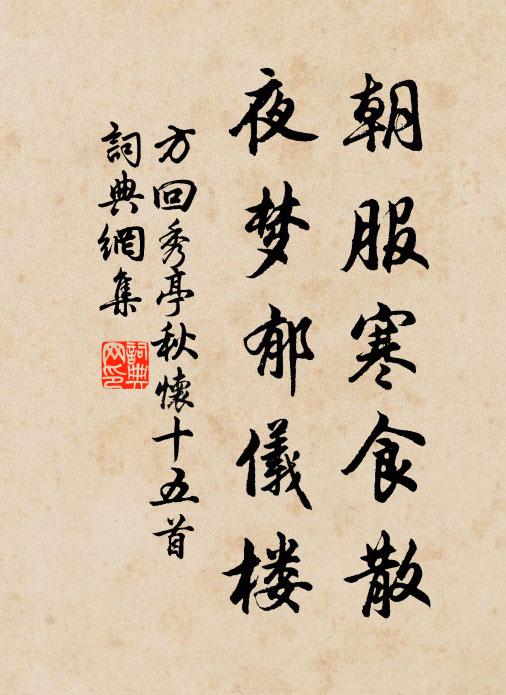 朝服寒食散
夜梦郁儀楼
方回秀亭秋懷十五首
詞典網集
詞典網印